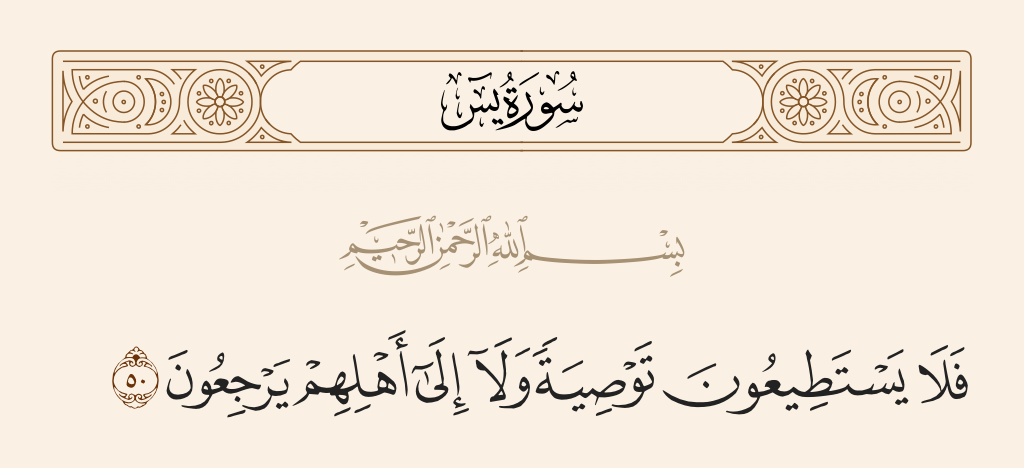 سُورَةُ يسٓ
بِسْمِ ٱللَّهِ ٱلرَّحْمَٰنِ ٱلرَّحِيمِ
فَلَا يَسْتَطِيعُونَ تَوْصِيَةً وَلَآ إِلَىٰٓ أَهْلِهِمْ يَرْجِعُونَ ٥٠